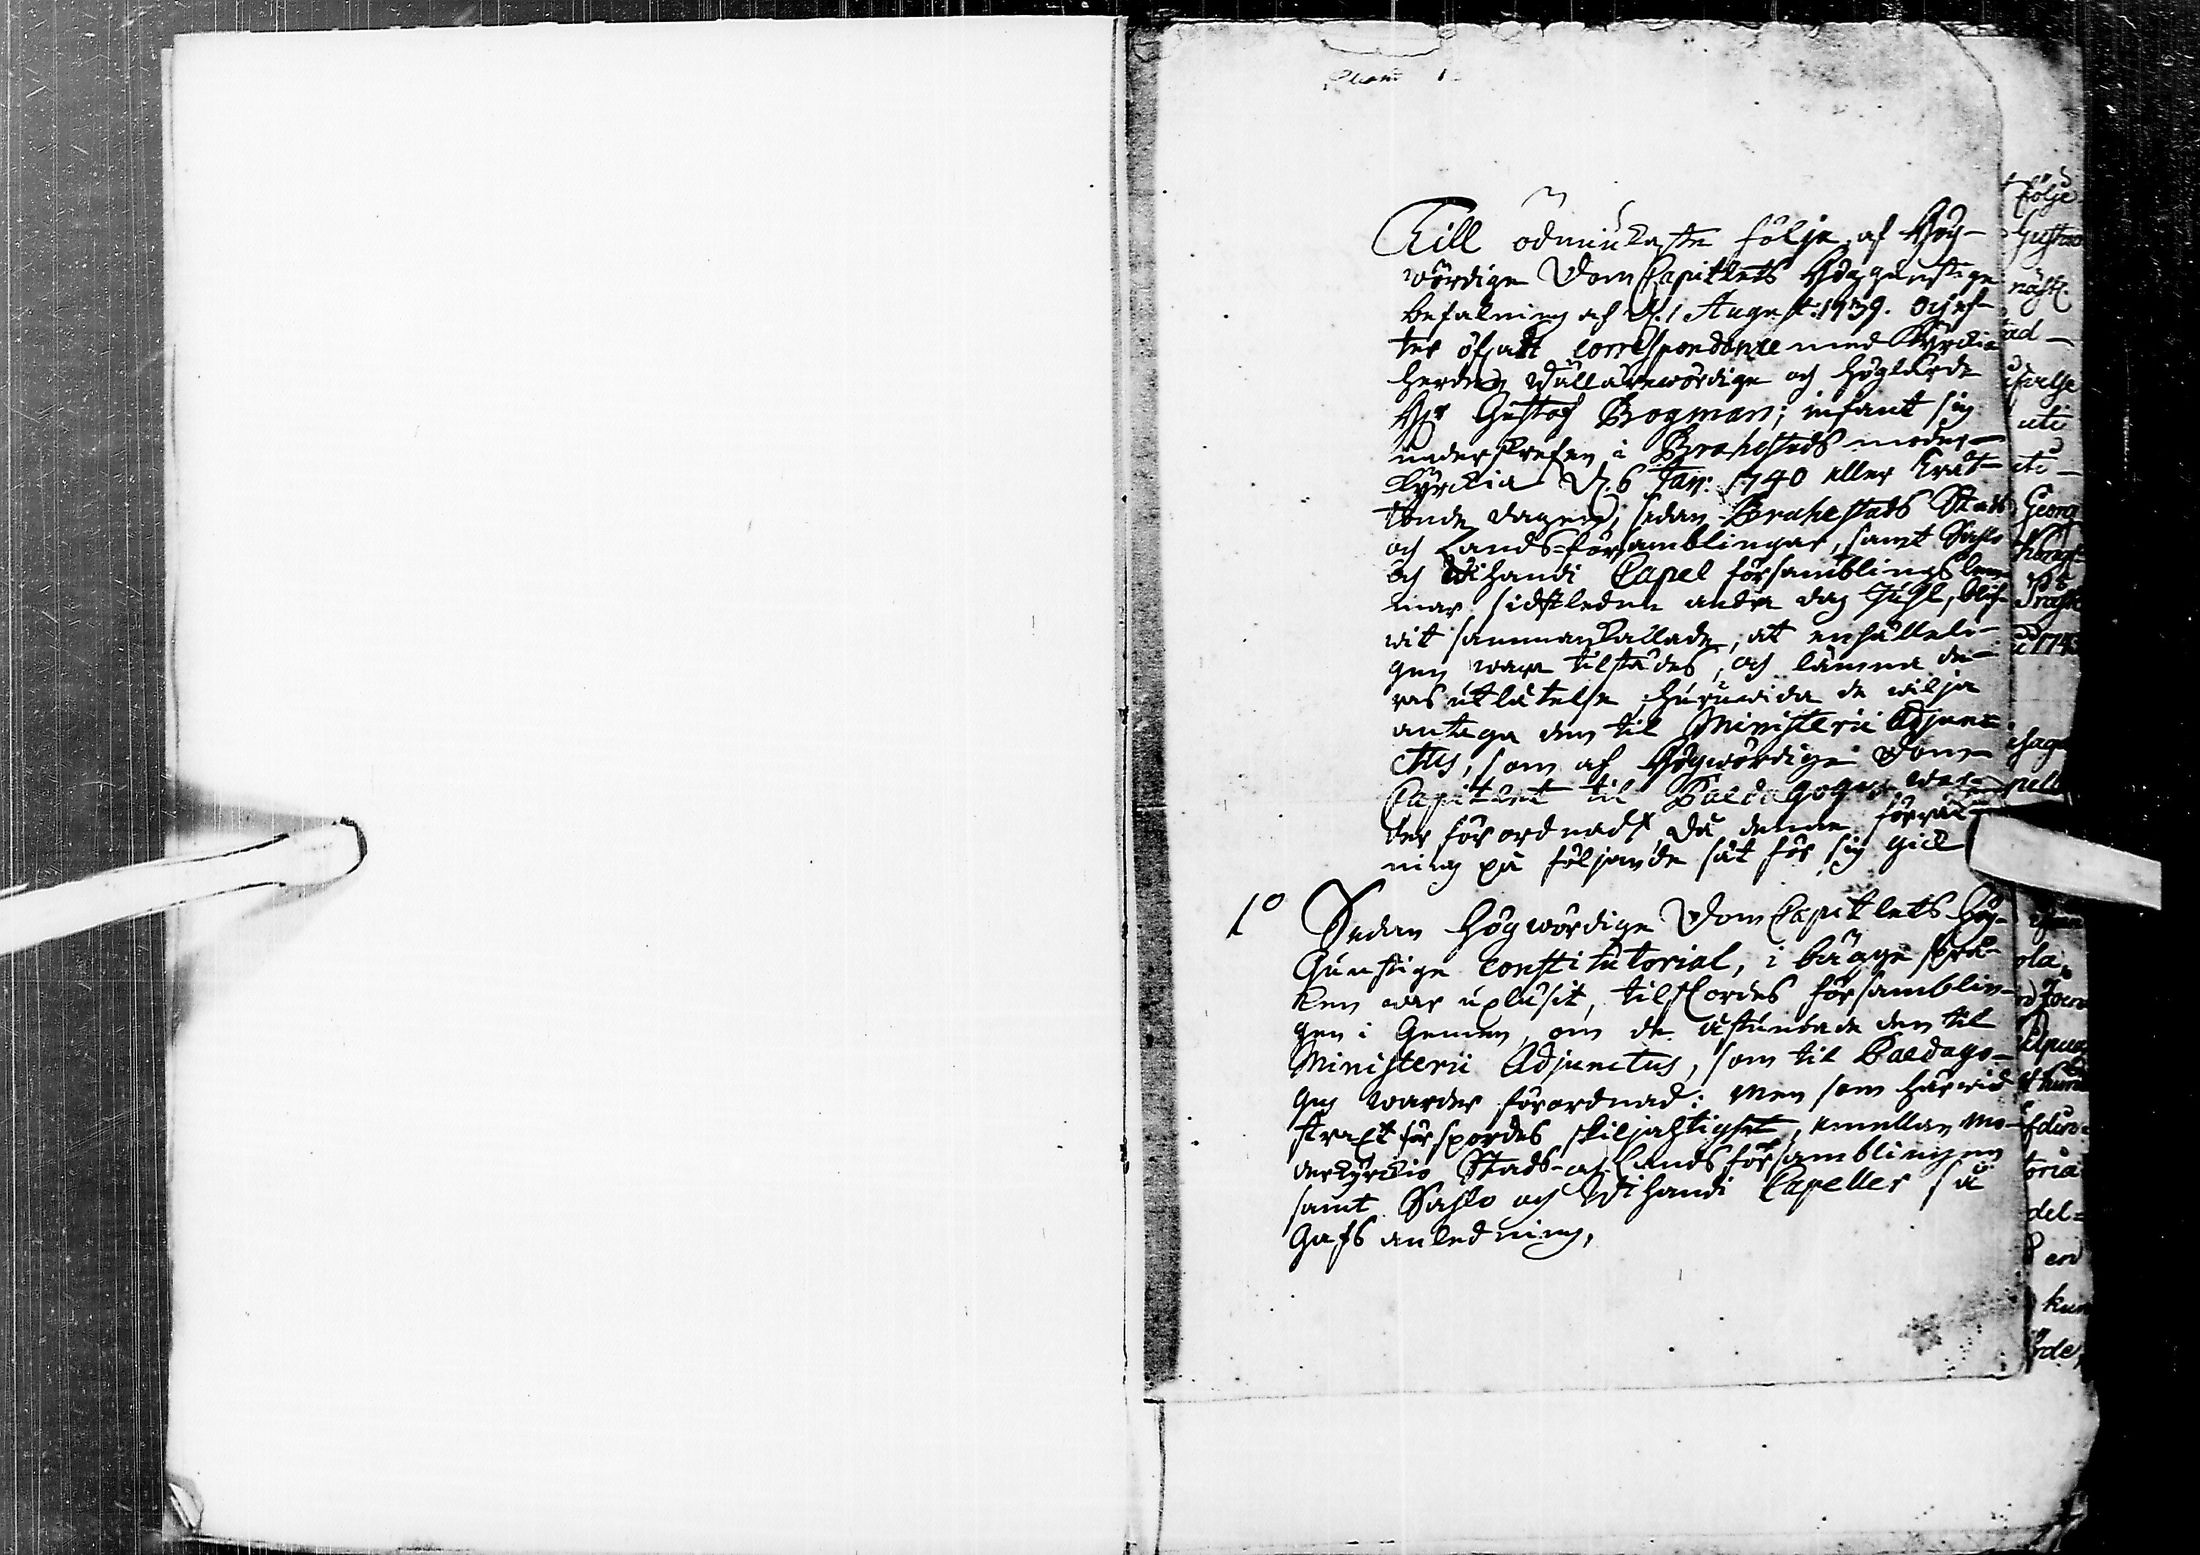 Till ödmiukaste följe af Hög-
wördige DomCapitlets Höggunstige
befalning af d. 1 August: 1739. och ef-
ter öfsatt correspondance med Kyrckio
Herden Wällärewördige och Höglärde
H:r Gustaf Bogman; infant sig
underskrefen i Brahestads moder-
kyrckia d. 6 Jan: 1740 eller Trät-
tonde dagen, sedan Brahestads Stads
och Lands-församblingar, samt Sahlo
och Wihandi Capel församblings lem-
mar sidstledne andra dag Juhl, blif-
wit sammankallade, at ensälleli-
gen wara tilstädes, och lämna de-
ras utlåtelse huruwida de wilja
antaga den til Ministerii Adjunc-
tus, som af Högwördige Dom-
Capitlet til Paedagogus war-
der förordnad, då denne förrät-
ning på följande sät för sig gick
1:o Sedan Högwördige DomCapitlets Hög-
Gunstige constitutorial, i bägge språ-
ken war upläsit, tilspordes församblin-
gen i Gemen, om de åstundade den til
Ministerii Adjunctus, som til Paedago-
gus warder förordnad: men som härwid
straxt förspordes skiljaktighet, emellan mo-
derkyrckio Stads- och Landsförsamblingen
samt Sahlo och Wihandi Capeller så
Gafs anledning,
följe
Gustav
näst.
ad-
uti
Georg
1740
ola,
toria
del=
en
kun
rde,